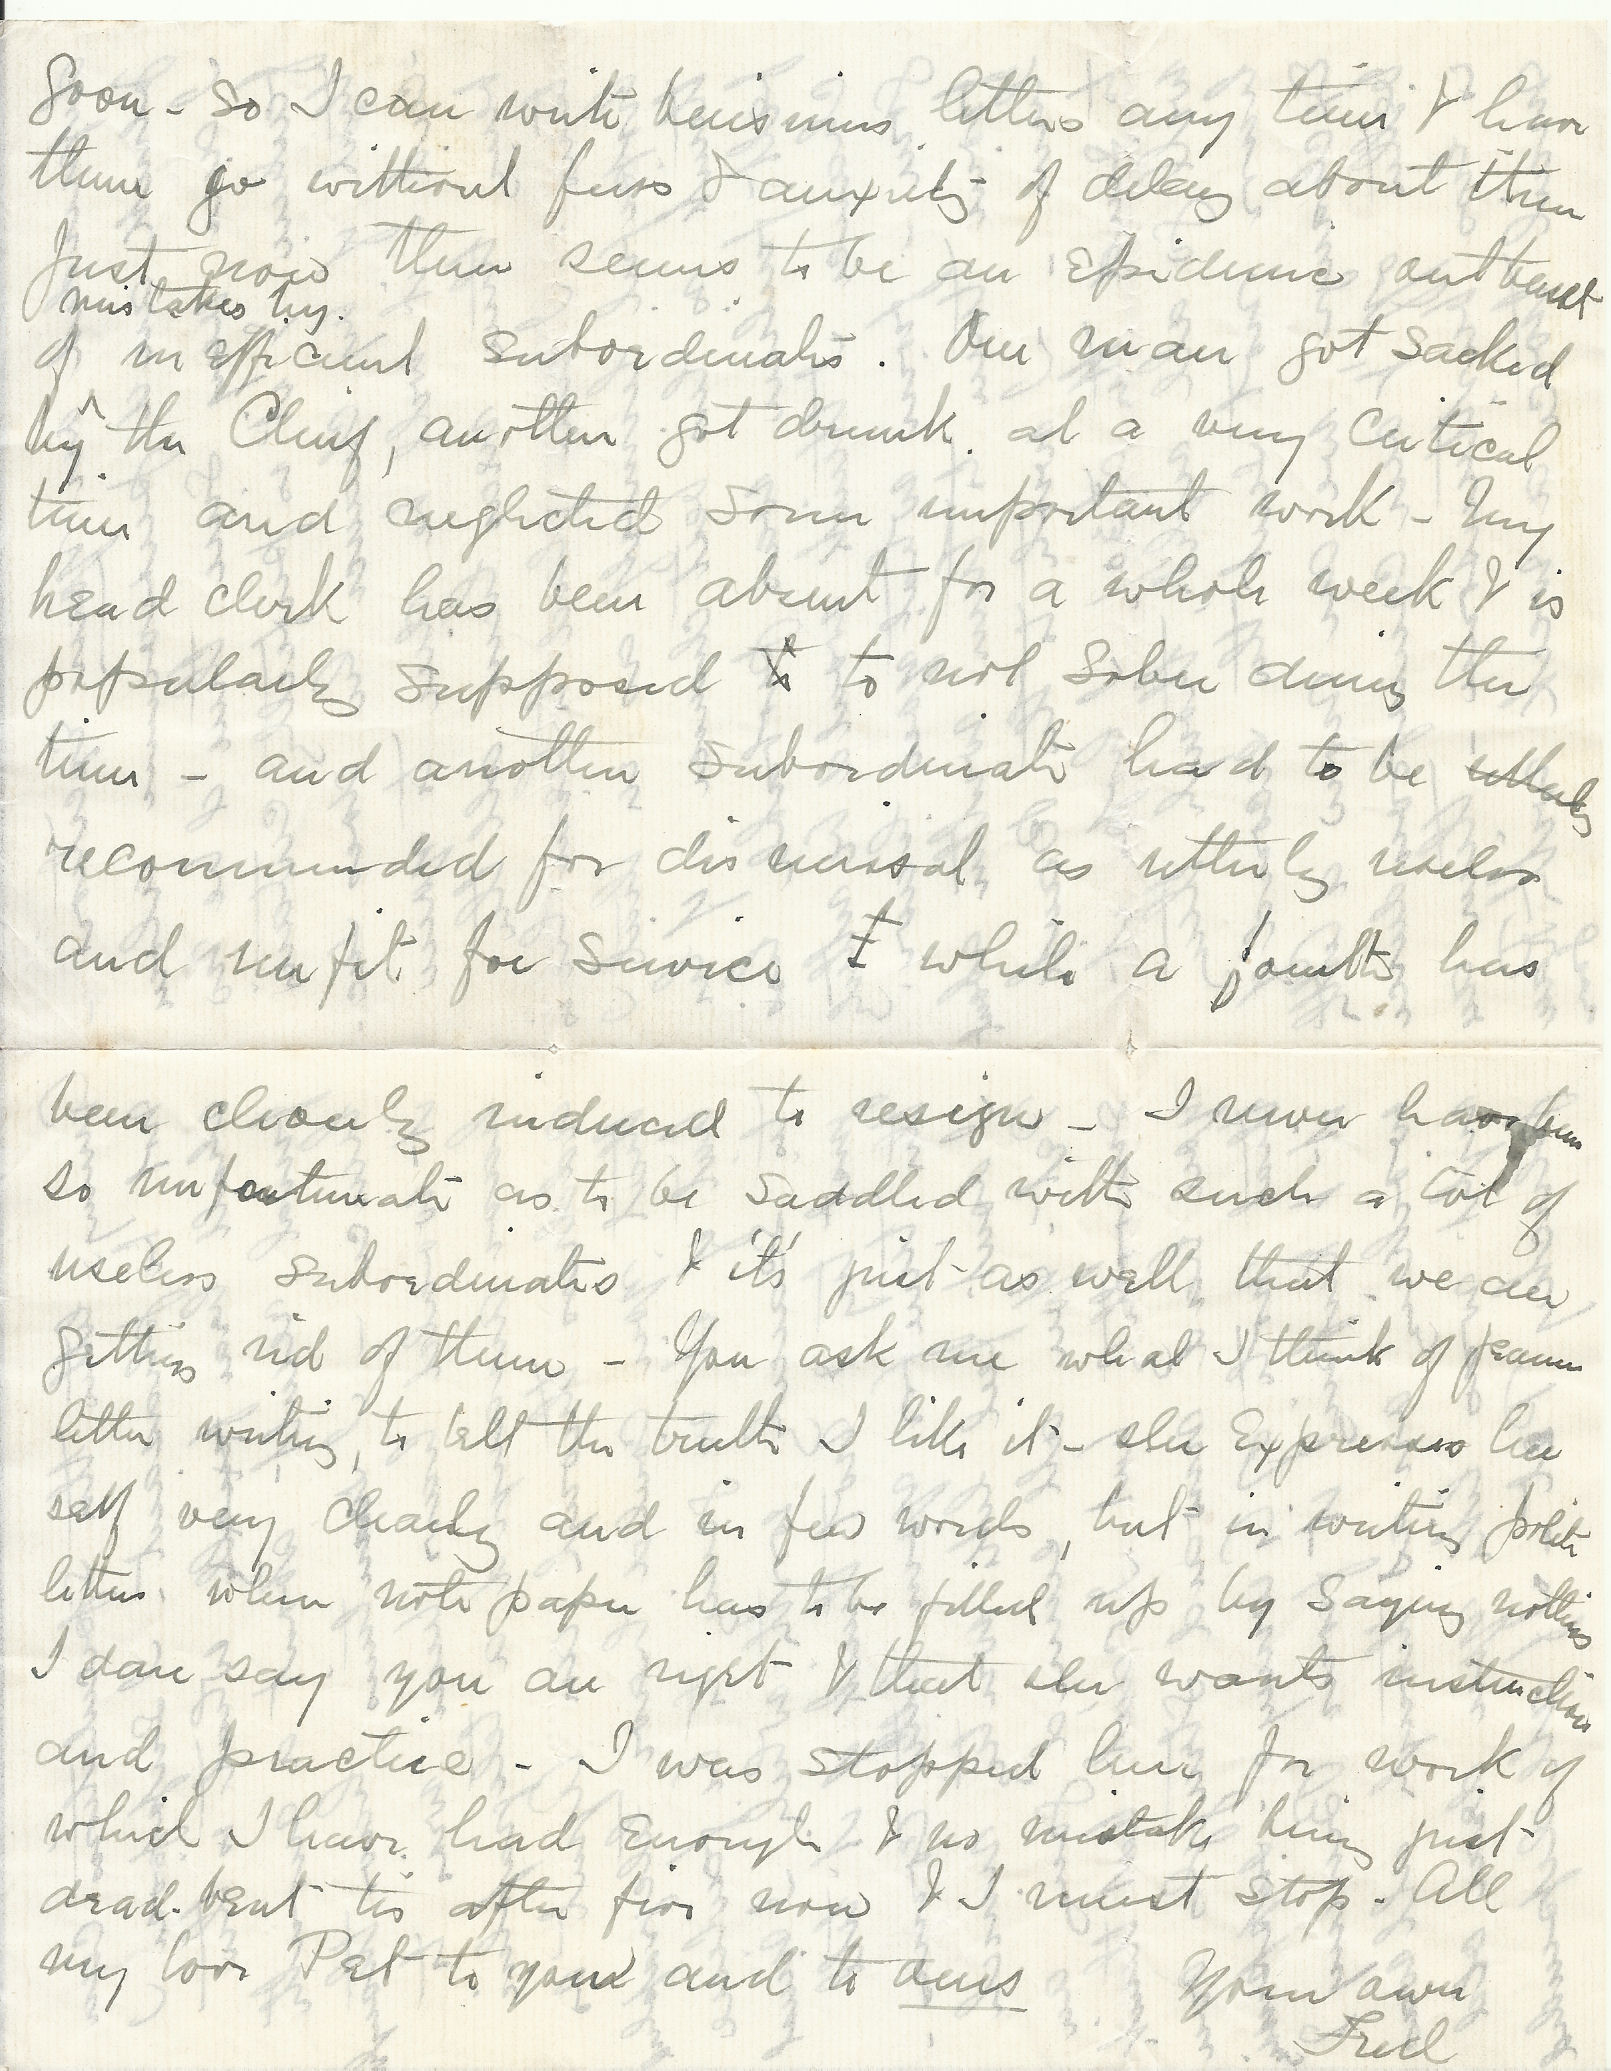 soon - so I can write business letters any time & have
them go without fuss & anxiety of delay about them
Just now there seems to be an Epidemic outburst
mistakes by.
of inefficient subordinates. One man got sacked
by the Chief, another got drunk at a very critical
time and neglected some important work - My
head clerk has been absent for a whole week & is
popularly supposed to not sober during the
time - and another subordinate had to be utterly
recommended for dismissal as utterly useless
and unfit for service & while a fourth has
been induced to resign - I never have been
so unfortunate as to be saddled with such a lot of
useless subordinates & it's just as well that we are
getting rid of them - You ask me what I think of
letter writing, to tell the truth I like it - she Expresses her
self very clearly and in few words, but in writing polite
letters when note paper has to be filled up by saying nothing
I dare say you are right & that she wants instruction
and practice - I was stopped here for work of
which I have had Enough & no mistake being just
dead-beat tis after five now & I must stop. All
my love Pet to you and to ours
Your own
Fred